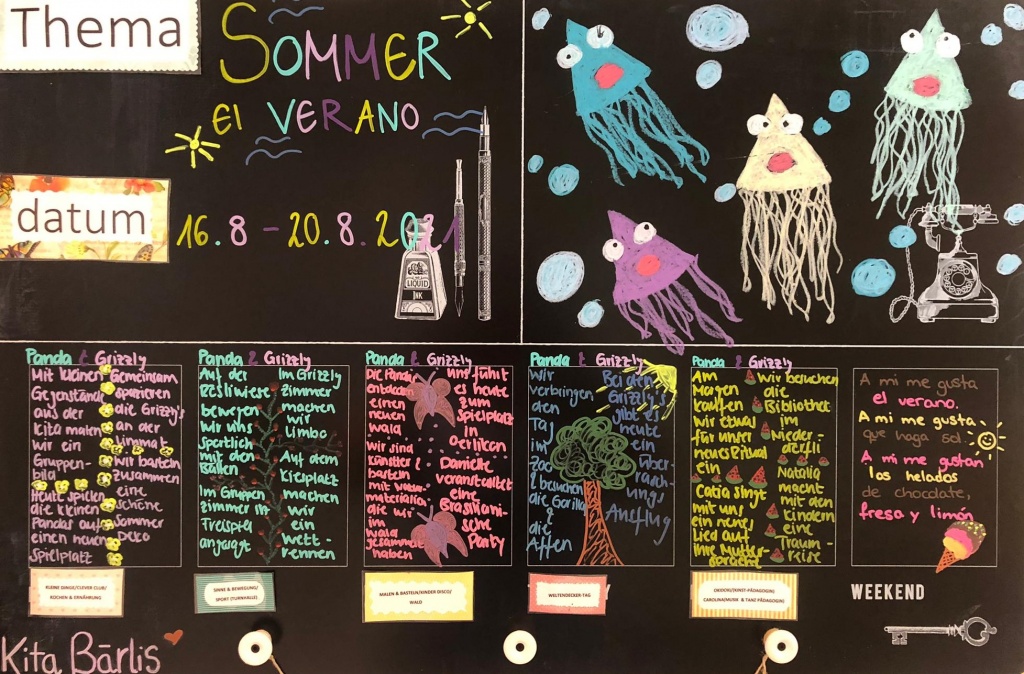 Thema
SOMMER
El VERANO
datum
16.8 - 20.8.2021
LIQUID
INK
Panda & Grizzly
Mit kleinen
Gegenständ
aus der
Kita malen
wir ein
Gruppen-
bild
Heute spielen
die kleinen
Pandas auf
einen neuen
spielplatz
Gemeinsam
spazieren
die Grizzly's
an der
Limmat
Wir basteln
zusammen
eine
schöne
Sommer
DEKO
KLEINE DINGE/CLEVER CLUB/
KOCHEN & ERNÄHRUNG
Panda & Grizzly
Auf der
Resliwiese
bewegen
wir uns
sportlich
mit den
Bällen
Im Gruppen
zimmer ist
Freispiel
angesagt
Im Grizzly
zimmer
machen
wir
Limbo
Auf dem
Kiesplatz
machen
wir
ein
Wett-
rennen
SINNE & BEWEGUNG/
SPORT (TURNHALLE)
Panda & Grizzly
Die Pandas
entdecken
einen
neuen
wald
wir sind
künstler &
basteln
mit Natur
materialien
die wir
im
wald
gesammelt
haben
uns führt
es heute
zum
spielplatz
in
oerlikon
Daniele
veranstaltet
eine
Brasiliani-
sche
Party
MALEN & BASTELN/KINDER DISCO/
WALD
Panda & Grizzly
Wir
verbringen
den
Tag
im
Zoo
& besuchen
die Gorilla
&
die
Affen
Bei den
Grizzly's
gibt es
heute
ein
über-
rasch-
ungs
Ausflug
WELTENDECKER-TAG
Panda & Grizzly
Am
Morgen
kaufen
wir etwas
für unser
neues Ritual
ein
Catia singt
mit uns
ein neues
Lied auf
Ihre Mutter-
sprache
Wir besuchen
die
Bibliothek
im
Nieder-
dörfli
Natalia
macht
mit den
kindern
eine
Traum-
reise
A mi me gusta
el verano.
A mi me gusta
que haga sol.
A mi me gustan
los helados
de chocolate,
fresa y limón
WEEKEND
Kita Bärlis